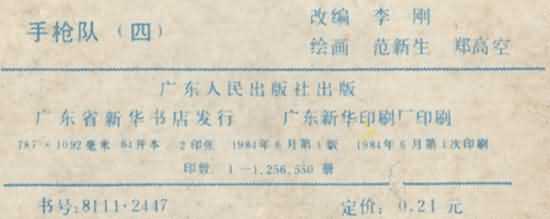 改编 李 刚
手枪队（四）
绘画 范新生 郑高空
广东人民出版社出版
广东省新华书店发行 广东新华印刷厂印刷
787×1092毫米 64开本 2印张 1984年6月第1版 1984年6月第1次印刷
印数 1—1,256,550 册
书号:8111·2447 定价: 0.21 元